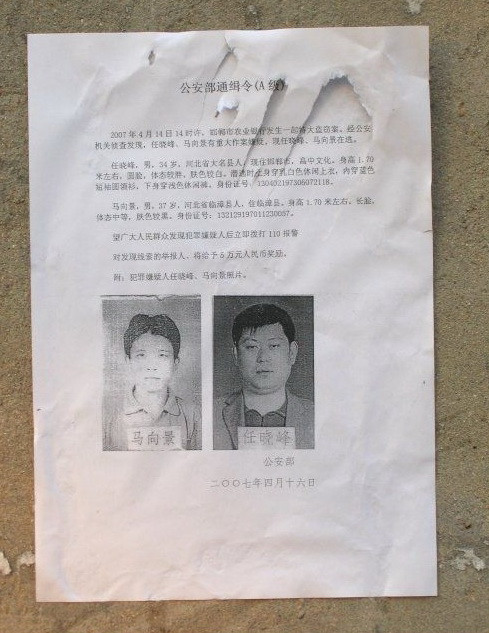 公安部通缉令(A 级)
2007年4月14日14时许，邯郸市农业银行发生一起特大盗窃案，经公安
机关侦查发现，任晓峰、马向景有重大作案嫌疑，现任晓峰、马向景在逃。
任晓峰，男，34岁，河北省大名县人，现住邯郸市，高中文化，身高1.70
米左右，圆脸，体态较胖，肤色较白，潜逃时上身穿乳白色休闲上衣，内穿蓝色
短袖圆领衫，下身穿浅色休闲裤，身份证号：130402197306072118。
马向景，男，37岁，河北省临漳县人，住临漳县，身高1.70米左右，长脸，
体态中等，肤色较黑，身份证号：132129197011230057。
望广大人民群众发现犯罪嫌疑人后立即拨打110报警
对发现线索的举报人，将给予5万元人民币奖励。
附：犯罪嫌疑人任晓峰、马向景照片。
马向景
任晓峰
公安部
二〇〇七年四月十六日